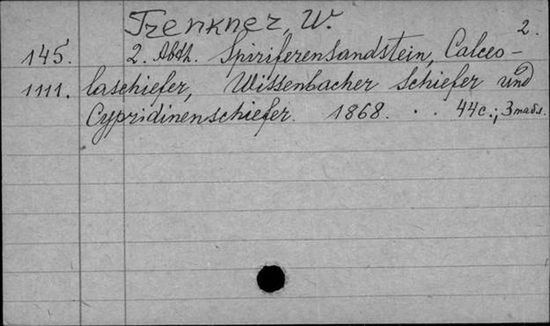 Trenkner, W. 2.
145. 2. Abth. Spiriferensandstein, Calceo-
1111. laschiefer, Wissenbacher Schiefer und
Cypridinenschiefer. 1868. .. 44c.; 3 mabs.